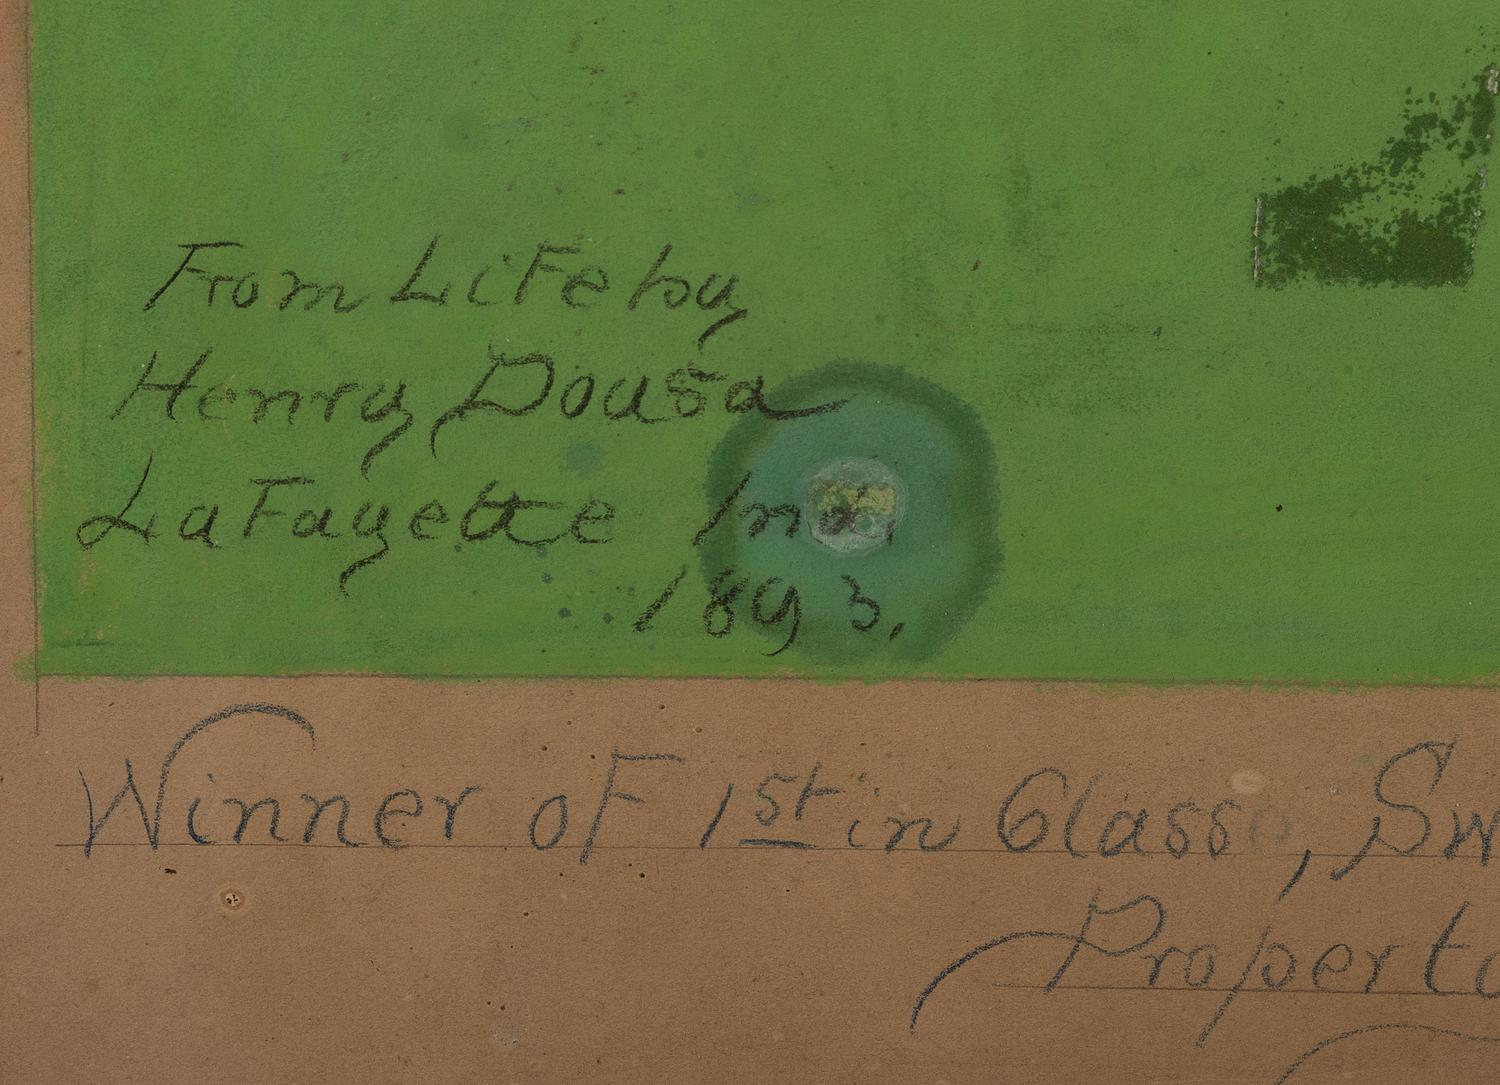 From LiFe by
Henry Dousa
LaFayette Ind,
1893.
Winner oF 1st in Glass,